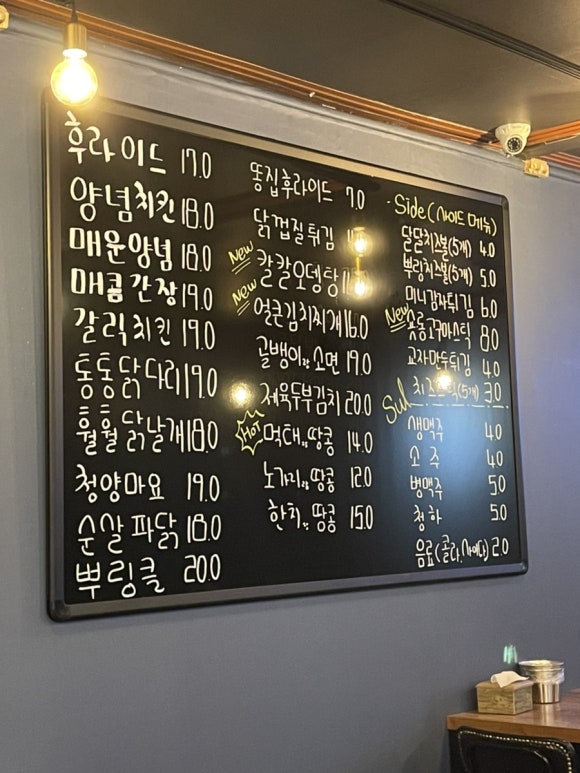 후라이드 17.0
양념치킨 18.0
매운양념 18.0
매콤간장 19.0
갈릭치킨 19.0
통통닭다리 19.0
훨훨닭날개 18.0
청양마요 19.0
순살파닭 18.0
뿌링클 20.0
똥집후라이드 7.0
닭껍질튀김
New 칼칼오뎅탕
New 얼큰김치찌개 16.0
골뱅이와 소면 19.0
제육두부김치 20.0
HOT 먹태와 땅콩 14.0
노가리와 땅콩 12.0
한치와 땅콩 15.0
- Side (사이드 메뉴)
달달치즈볼(5개) 4.0
뿌링치즈볼(5개) 5.0
미니감자튀김 6.0
New 고구마스틱 8.0
교자만두튀김 4.0
치즈스틱(5개) 3.0
Sul
생맥주 4.0
소주 4.0
병맥주 5.0
청하 5.0
음료(콜라,사이다) 2.0